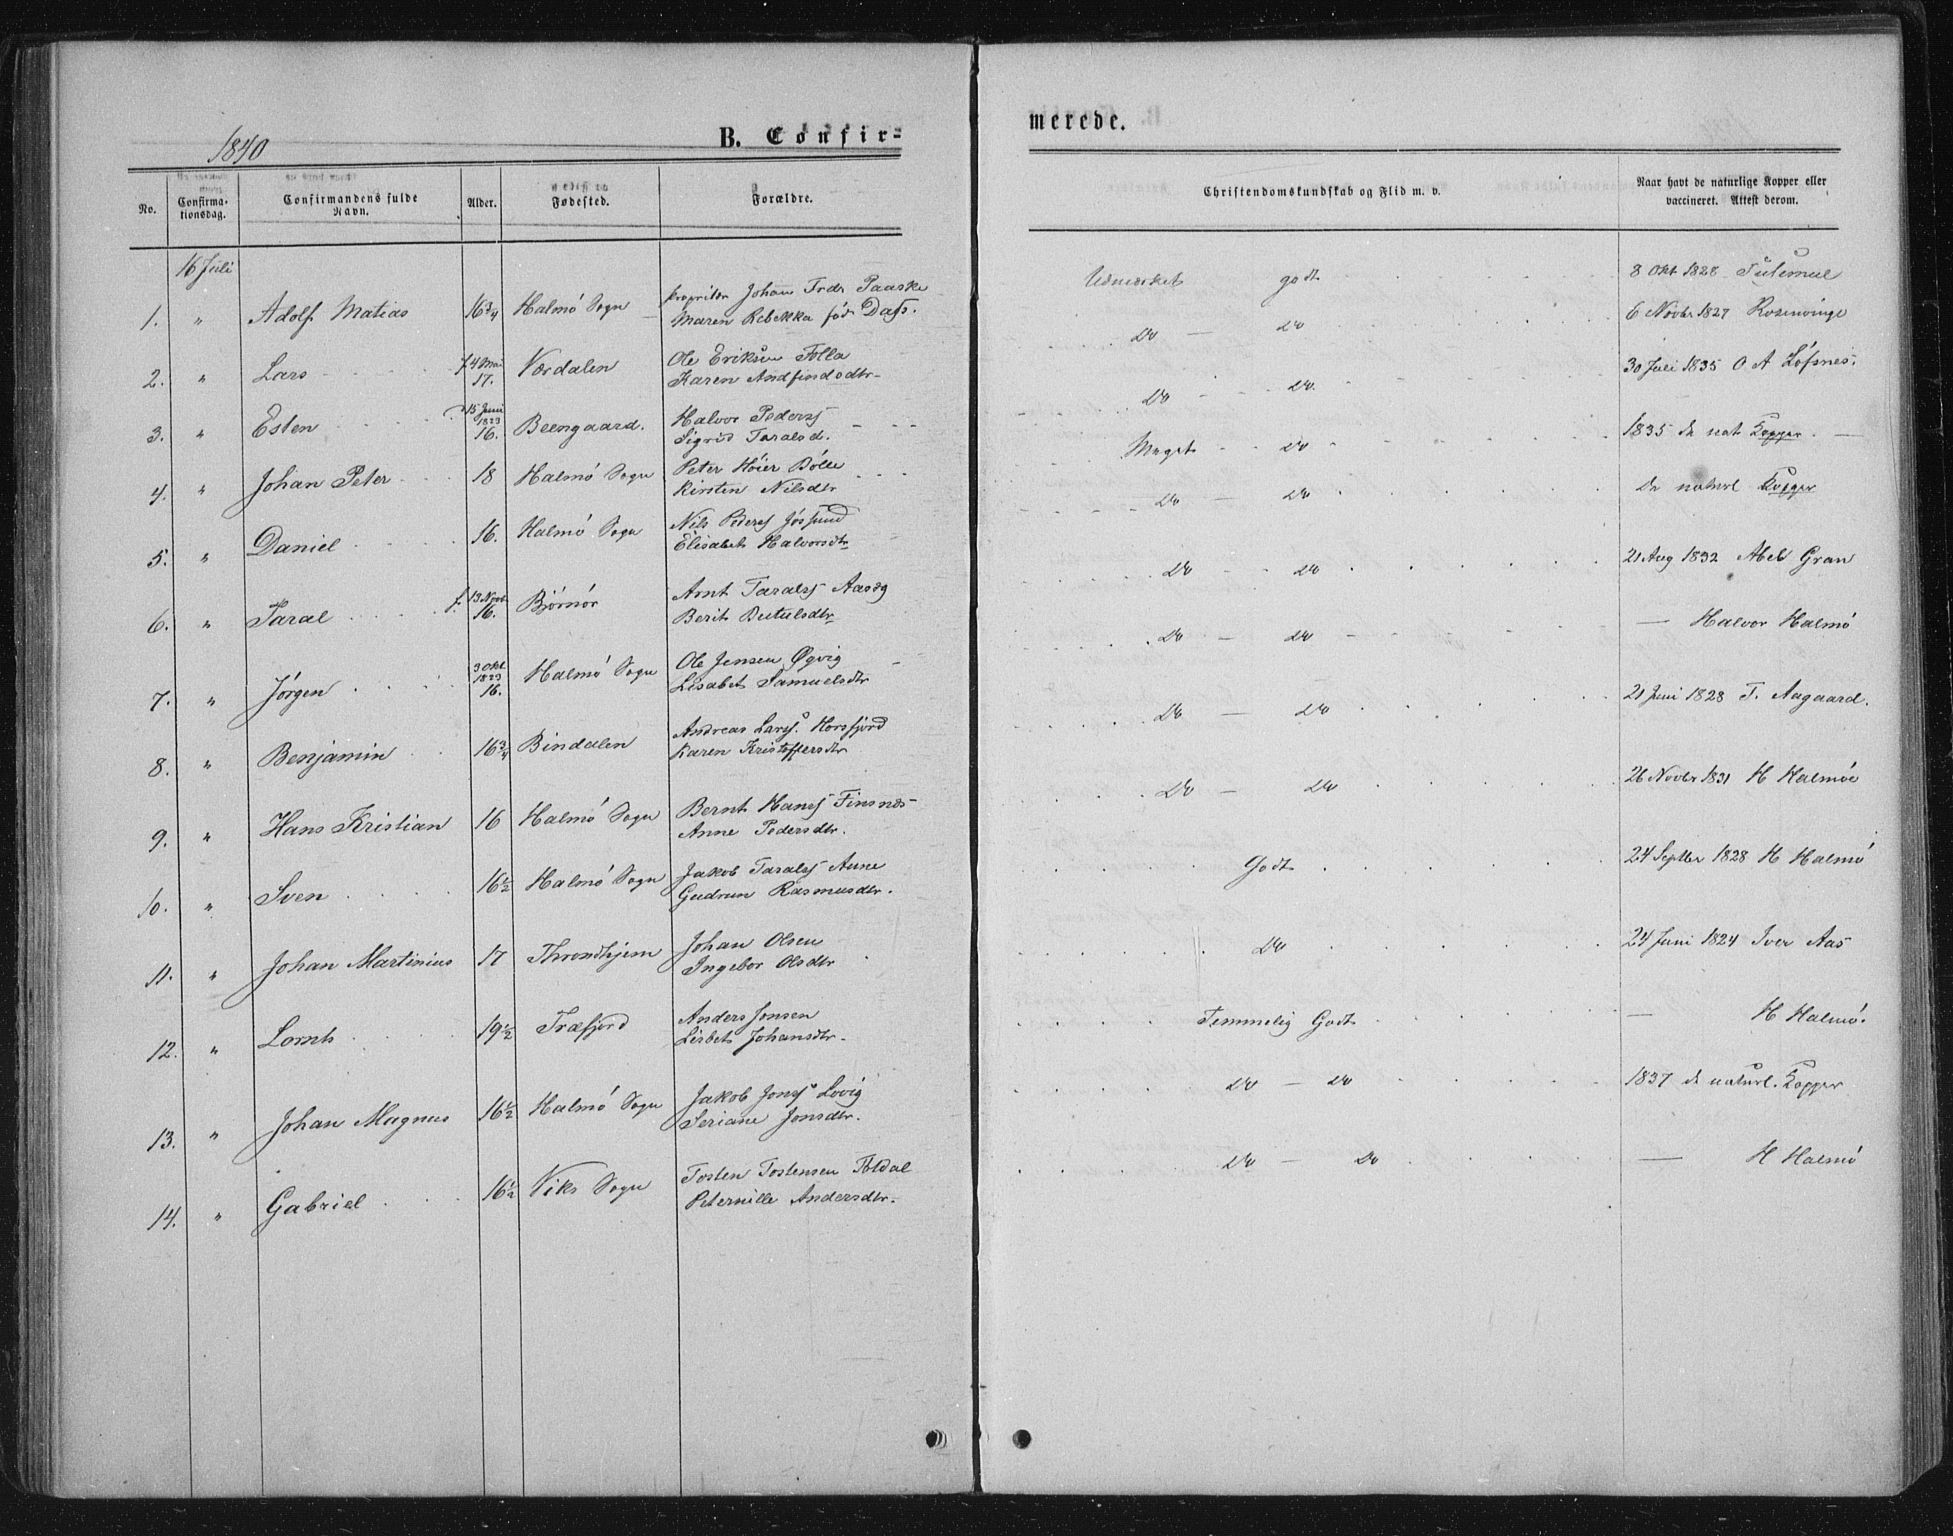 1840
B. Confir-
merede.
No.
Confirma-
tionsdag.
Confirmandens fulde
Navn.
Alder.
Fødested.
Forældre.
Christendomskundskab og Flid m. v.
Naar havt de naturlige Kopper eller
vaccineret. Attest derom.
16 Juli
1. " Adolf Matias 16 3/4 Halmö Sogn Propritær Johan Fredr Paaske
Maren Rebekka föd Dass.
Udmærket godt 8 Okt 1828
2. " Lars f. 4 Mai 17. Værdalen Ole Eriksen Folla
Karen Andfindsdtr
Do — Do 6 Novbr 1827 Rosenvinge
3. " Esten 15 Juni 1823 16. Beengaard. Halvor Pedersj
Sigrid Taralsd.
Do - - Do. 30 Juli 1835 O A Löfsnes.
4. " Johan Peter 18 Halmö Sogn Peter Höier Bölle
Kirsten Nilsdtr
Meget - Do 1835 de nat Kopper. —
5. " Daniel 16. Halmö Sogn Nils Pedersj
Elisabet Halvorsdtr
Do — Do de naturl Kopper
6. " Taral f. 13 Novb 16. Björnör Arnt Taralsj
Berit
Do - - Do 21 Aug 1832 Abel Gran
7. " Jörgen 3 Okt 1823 16. Halmö Sogn Ole Jensen Øgvig
Lisabet Samuelsdtr
Do — Do — Halvor Halmö
8. " Benjamin 16 3/4 Bindalen Andreas Larsj. Horsfjord
Karen Kristoffersdtr
Do — Do 21 Juni 1828 T. Aagaard.
9. " Hans Kristian 16 Halmö Sogn Bernt Hansj Finsnes
Anne Pedersdtr.
Do — Do 26 Novbr 1831 H Halmöe
10. " Sven 16 1/2 Halmö Sogn Jakob Taralsj Aune
Gudrun Rasmusdtr.
Godt 24 Septbr 1828 H Halmö
11. " Johan Martinius 17 Throndhjem Johan Olsen
Ingebor Olsdtr
Do 24 Juni 1824 Iver Aas
12. " Lornts 19 1/2 Træfjord Anders Jonsen
Lisbet Johansdtr.
Temmelig Godt — H Halmö.
13. " Johan Magnus 16 1/2 Halmö Sogn Jakob Jonsj Lövig
Seriane Jonsdtr.
Do — Do 1837 de naturl. Kopper
14. " Gabriel 16 1/2 Viks Sogn Tosten Tostensen
Peternille Andersdtr.
Do — Do — H Halmö